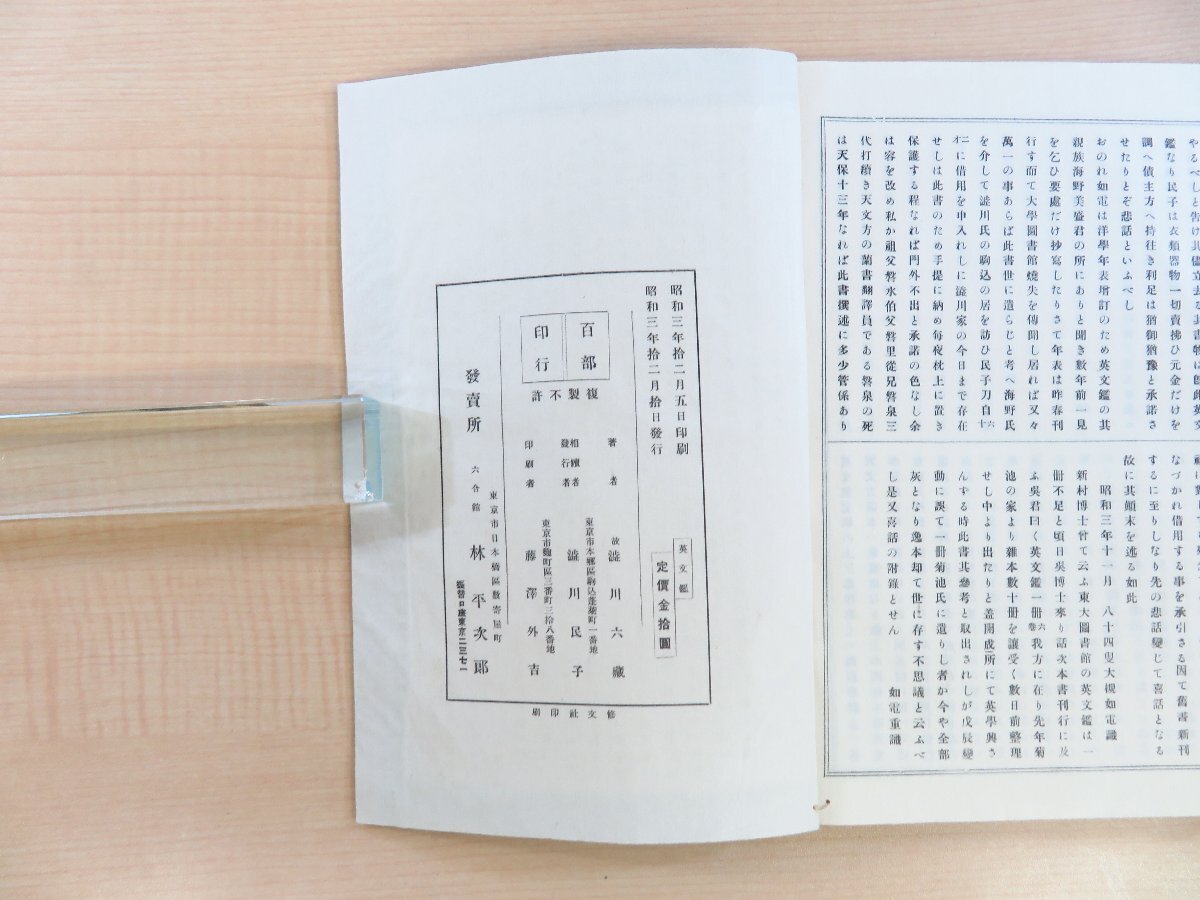 やるべしと告け其儘立去な其書物は即此英文
鑑なり民子は衣類器物一切賣拂ひ元金だけを
調へ債主方へ持往き利足は猶御猶豫と承諾さ
せたりとぞ悲話といふべし
おのれ如電は洋學年表增訂のため英文鑑の其
親族海野美盛君の所にありと聞き數年前一見
を乞ひ要處だけ抄寫したりさて年表は昨春刊
行す而て大學圖書館燒失を傳聞し居れば又々
萬一の事あらば此書世に遺らじと考へ海野氏
を介して澁川氏の駒込の居を訪ひ民子刀自六十
二才に借用を申入れしに澁川家の今日まで存在
せしは此書のため手提に納め每夜枕上に置き
保護する程なれば門外不出と承諾の色なし余
は容を改め私か祖父磐水伯父磐里從兄磐泉三
代打續き天文方の蘭書翻譯員である磐泉の死
は天保十三年なれば此書撰述に多少管係あり
なづかれ借用する事を承引さる因て舊書新刊
するに至りしなり先の悲話變じて喜話となる
故に其顛末を述る如此
昭和三年十一月 八十四叟大槻如電識
新村博士曾て云ふ東大圖書館の英文鑑は一
冊不足と頃日吳博士來り話次本書刊行に及
ふ吳君曰く英文鑑一冊卷六我方に在り先年菊
池の家より雜本數十冊を讓受く數日前整理
せし中より出たりと盖開成所にて英學興さ
んずる時此書其參考と取出されしが戊辰變
動に誤て一冊菊池氏に遺りし者か今や全部
灰となり逸本却て世に存す不思議と云ふべ
し是又喜話の附錄とせん 如電重識
昭和三年拾二月五日印刷
昭和三年拾二月拾日發行
英文鑑
定價金拾圓
百部
印行
複製不許
著者 故 澁川六藏
東京市本鄕區駒込蓬萊町一番地
相續者
發行者 澁川民子
東京市麴町區三番町三拾八番地
印刷者 藤澤外吉
東京市日本橋區數寄屋町
發賣所 六合館 林平次郎
振替口座東京二三七二
修文社印刷